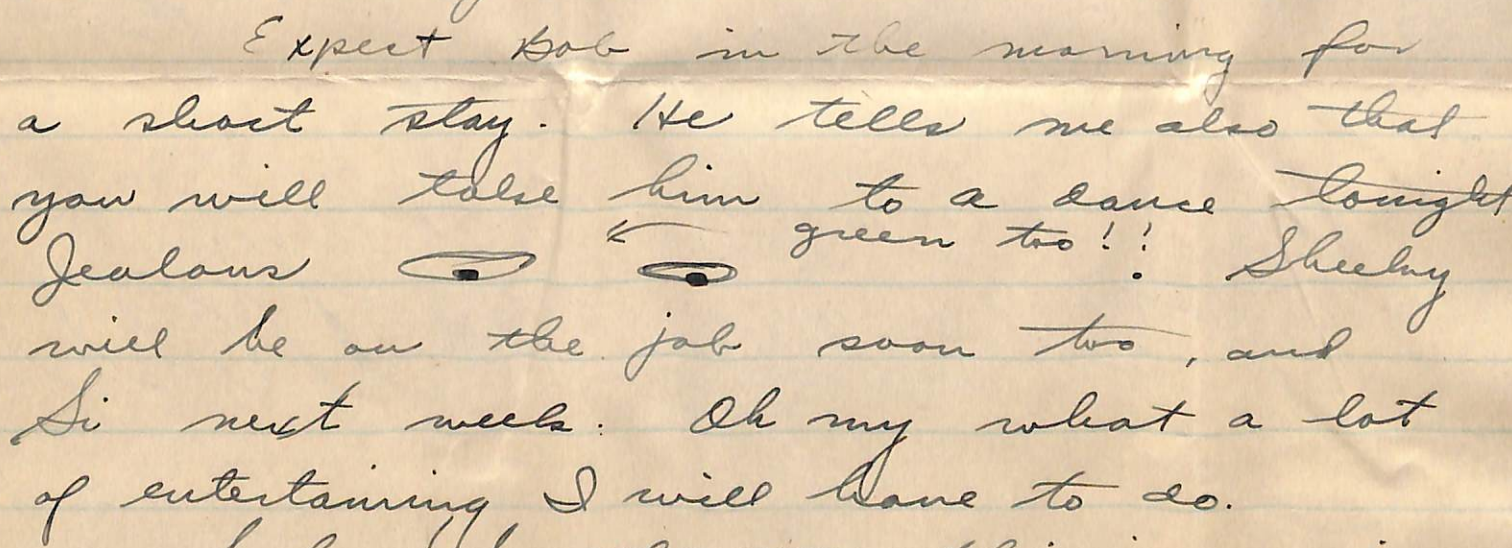 Expect Bob in the morning for
a short stay. He tells me also that
you will take him to a dance tonight
green too!!
Jealous . Sheeby
will be on the job soon too, and
Si next week. Oh my what a lot
of entertaining I will have to do.